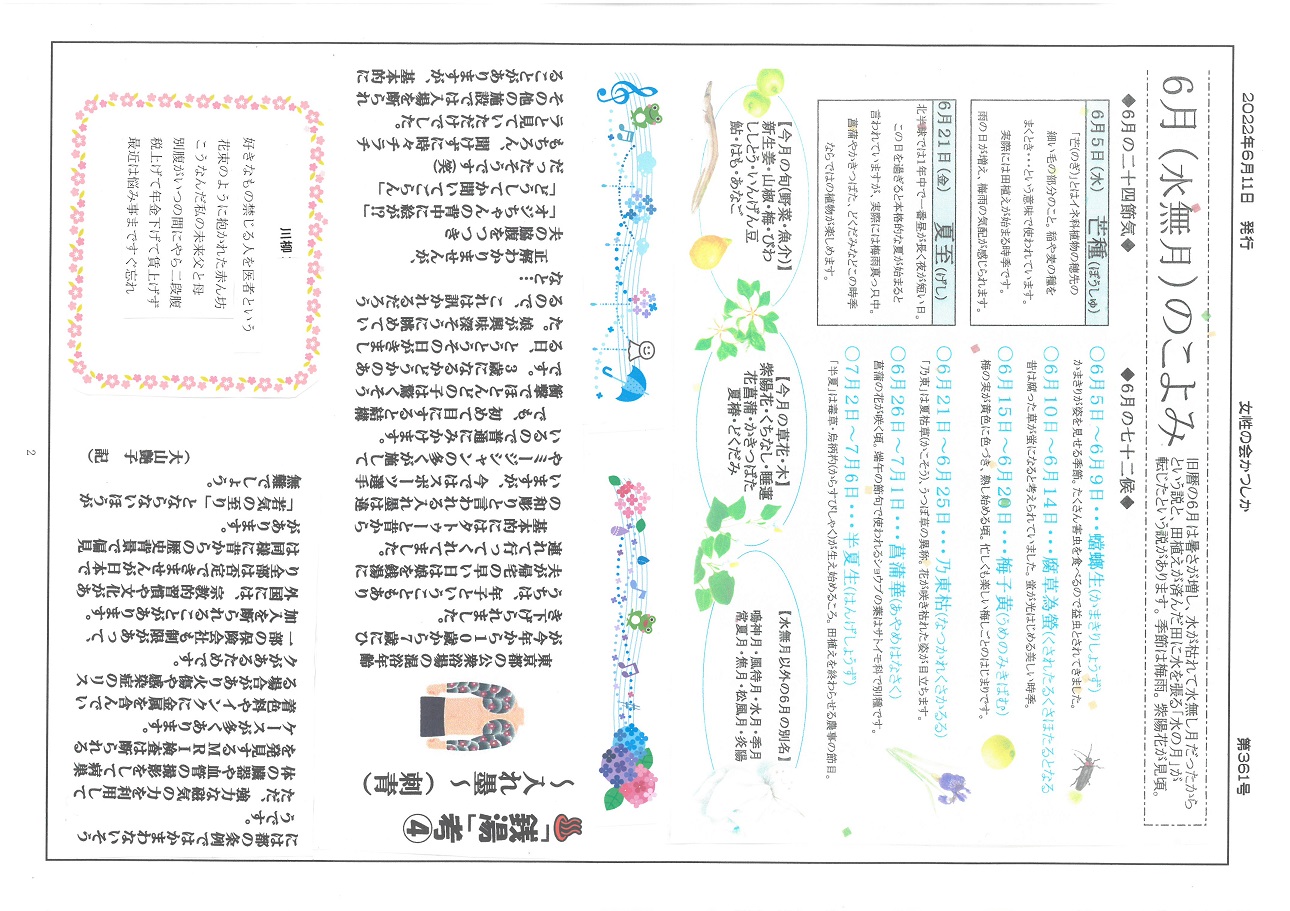 2022年6月1日　発行　女性の会かつしか　第361号
6月(水無月)のこよみ
旧暦の6月は暑さが増し、水が枯れて水無し月だったから
という説と、田植えが済んだ田に水を張る「水の月」が
転じたという説があります。季節は梅雨。紫陽花が見頃。
◆6月の二十四節気◆
6月5日(水)　芒種(ぼうしゅ)
「芒(のぎ)」とはイネ科植物の穂先の
細い毛の部分のこと。稲や麦の種を
まくとき・・という意味で使われています。
実際には田植えが始まる時季です。
雨の日が増え、梅雨の気配が感じられます。
6月21日(金)　夏至(げし)
北半球では1年中で一番昼が長く夜が短い日。
この日を過ぎると本格的な夏が始まると
言われていますが、実際には梅雨真っ只中。
菖蒲やかきつばた、どくだみなどこの時季
ならではの植物が楽しめます。
◆6月の七十二候◆
〇6月5日～6月9日・・・蟷螂生(かまきりしょうず)
かまきりが姿を見せる季節。たくさん害虫を食べるので益虫とされてきました。
〇6月10日～6月14日・・・腐草為螢(くされたるくさほたるとなる)
昔は腐った草が蛍になると考えられていました。蛍が光はじめる美しい時季。
〇6月15日～6月20日・・・梅子黄(うめのみきばむ)
梅の実が黄色に色づき、熟し始める頃。忙しくも楽しい梅しごとのはじまりです。
〇6月21日～6月25日・・・乃東枯(なつかれくさかるる)
「乃東」は夏枯草(かこそう)、うつぼ草の異称。花が咲き枯れた姿が目立ちます。
〇6月26日～7月1日・・・菖蒲華(あやめはなさく)
菖蒲の花が咲く頃。端午の節句で使われるショウブの葉はサトイモ科で別種です。
〇7月2日～7月6日・・・半夏生(はんげしょうず)
「半夏」は毒草・烏柄杓(からすびしゃく)が生え始めるころ。田植えを終わらせる農事の節目。
【今月の旬(野菜・魚介)】
新生姜・山椒・梅・びわ
ししとう・いんげん豆
鮎・はも・あなご
【今月の草花・木】
紫陽花・くちなし・睡蓮
花菖蒲・かきつばた
夏椿・どくだみ
【水無月以外の6月の別名】
鳴神月・風待月・水月・季月
常夏月・焦月・松風月・炎陽
「銭湯」考④
～入れ墨～(刺青)
東京都の公衆浴場の混浴年齢
が今年から10歳から7歳にひ
き下げられました。
うちは、年子ということもあり
夫が帰宅の早い日は娘を銭湯に
連れて行ってくれてました。
基本的にはタトゥーと昔から
の和彫りと言われる入れ墨は違
いますが、今ではスポーツ選手
やミージシャンの多くが施して
いるので普通にみかけます。
でも、初めて目にすると結構
衝撃でほとんどの子は驚くそう
です。3歳になるかどうかのあ
る日、とうとうその日がきまし
た。娘が興味深そうに眺めてい
るので、これは訊かれるだろう
など…
正解わかりませんが、
夫の脇腹をつつき
「オジちゃんの背中に絵が!?」
「どうしてか聞いてごらん」
だったそうです(笑
もちろん、聞けずに時々チラチ
ラと見ていただけでした。
その他の施設では入場を断られ
ることがありますが、基本的に
には都の条例ではかまわないそう
うです。
ただ、強力な磁気の力を利用して
体の臓器や血管の撮影をして病巣
を発見するMRI検査は断られる
ケースが多くあります。
着色料やインクに金属を含んでい
る場合がありや火傷や感染症のリス
クがあるためです。
一部の保険会社も制限があって、
加入を断られることがあります。
外国には、宗教的習慣や文化があ
り全部は否定できませんが日本で
は同様に昔からの歴史背景で偏見
があります。
「若気の至り」とならないほうが
無難でしょう。
(大山 艶子 記)
川柳:
好きなもの禁じる人を医者という
花束のように抱かれた赤ん坊
こうなんだ私の未来父と母
別腹がいつの間にやら二段腹
税上げて年金下げて賃上げず
最近は悩み事まですぐ忘れ
2